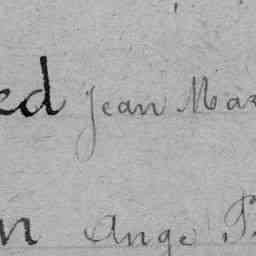 ed Jean Mar
n Ange P